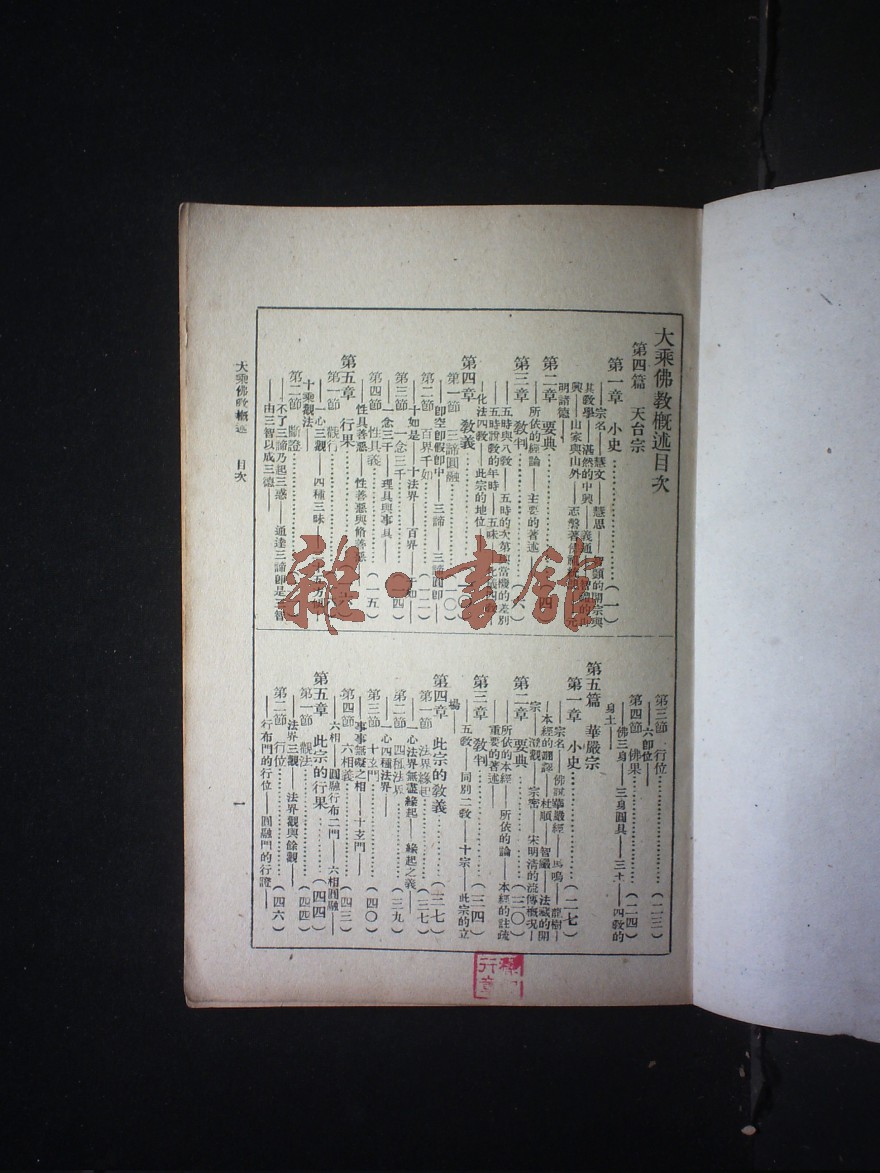 大乘佛教概述目次
第四篇 天台宗
第一章 小史…………(一)
——宗名——慧文——慧思——顗的開宗與
其教學——湛然的中興——義通
興——山家與山外——志磐著佛祖統紀——元
明諸德——
第二章 要典…………(四)
——所依的經論——主要的著述——
第三章 教判…………(六)
——五時與八教——五時的次第與當機的差別
——五時說教的年時——五味——化儀四教——
——化法四教——此宗的地位——
第四章 教義…………(一〇)
第一節 三諦圓融…………(一〇)
——卽空卽假卽中——三諦——三諦圓卽
第二節 百界千如…………(一二)
——十如是——十法界——百界——千如——
第三節 一念三千…………(一四)
——一念三千——理具與事具——
第四節 性具義…………(一五)
——性具善惡——性善惡與修善惡
第五章 行果…………
第一節 觀行…………
——一心三觀——四種三昧——二十五方便——
十乘觀法——
第二節 斷證…………
——不了三諦乃起三惑——通達三諦卽是三智
——由三智以成三德——
第三節 行位…………(二三)
——六卽位——
第四節 佛果…………(二四)
——佛三身——三身圓具——三土——四教的
身土——
第五篇 華嚴宗
第一章 小史…………(二七)
——宗名——佛說華嚴經——馬鳴——龍樹——
——本經的翻譯——杜順——智嚴——法藏的開
宗——澄觀——宗密——宋明清的流傳概况——
第二章 要典…………(三〇)
——所依的本經——所依的論——本經的註疏
——重要的著述——
第三章 教判…………(三四)
——五教——同別二教——十宗——此宗的立
場——
第四章 此宗的教義…………(三七)
第一節 法界緣起…………(三七)
——一心法界無盡緣起——緣起之義——
第二節 四種法界…………(三九)
——一心四種法界——
第三節 十玄門…………(四〇)
——事事無礙之相——十玄門——
第四節 六相義…………(四三)
——六相——圓融行布二門——六相圓融——
第五章 此宗的行果…………(四四)
第一節 觀法…………(四四)
——法界三觀——法界觀與餘觀——
第二節 行位…………(四六)
——行布門的行位——圓融門的行證——
大乘佛教概述 目次
一
雜·書館